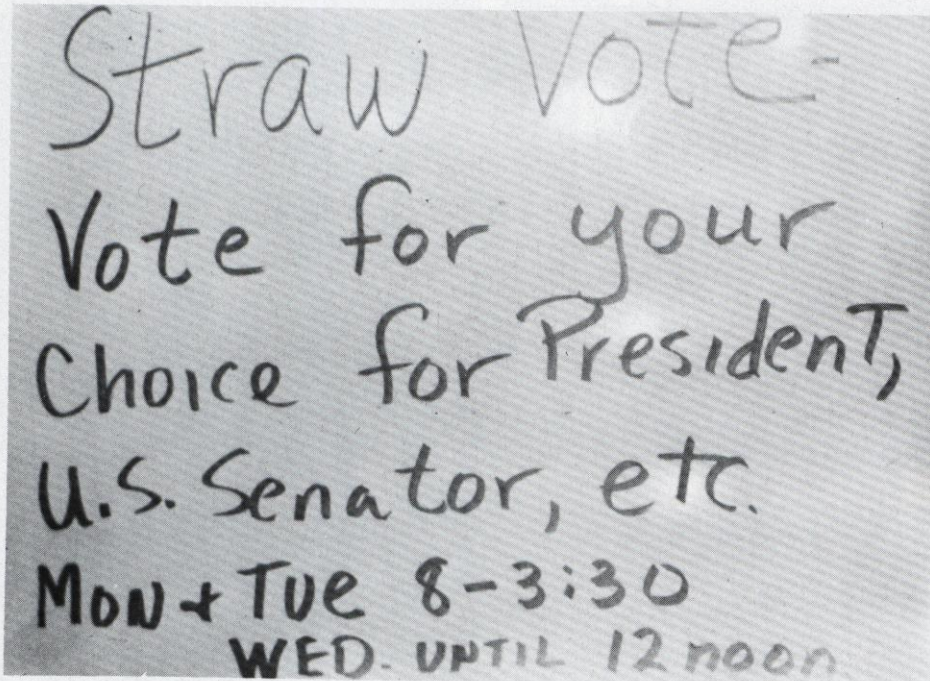 Straw Vote-
Vote for your
Choice for President,
U.S. Senator, etc.
Mon + Tue 8-3:30
WED. UNTIL 12 noon